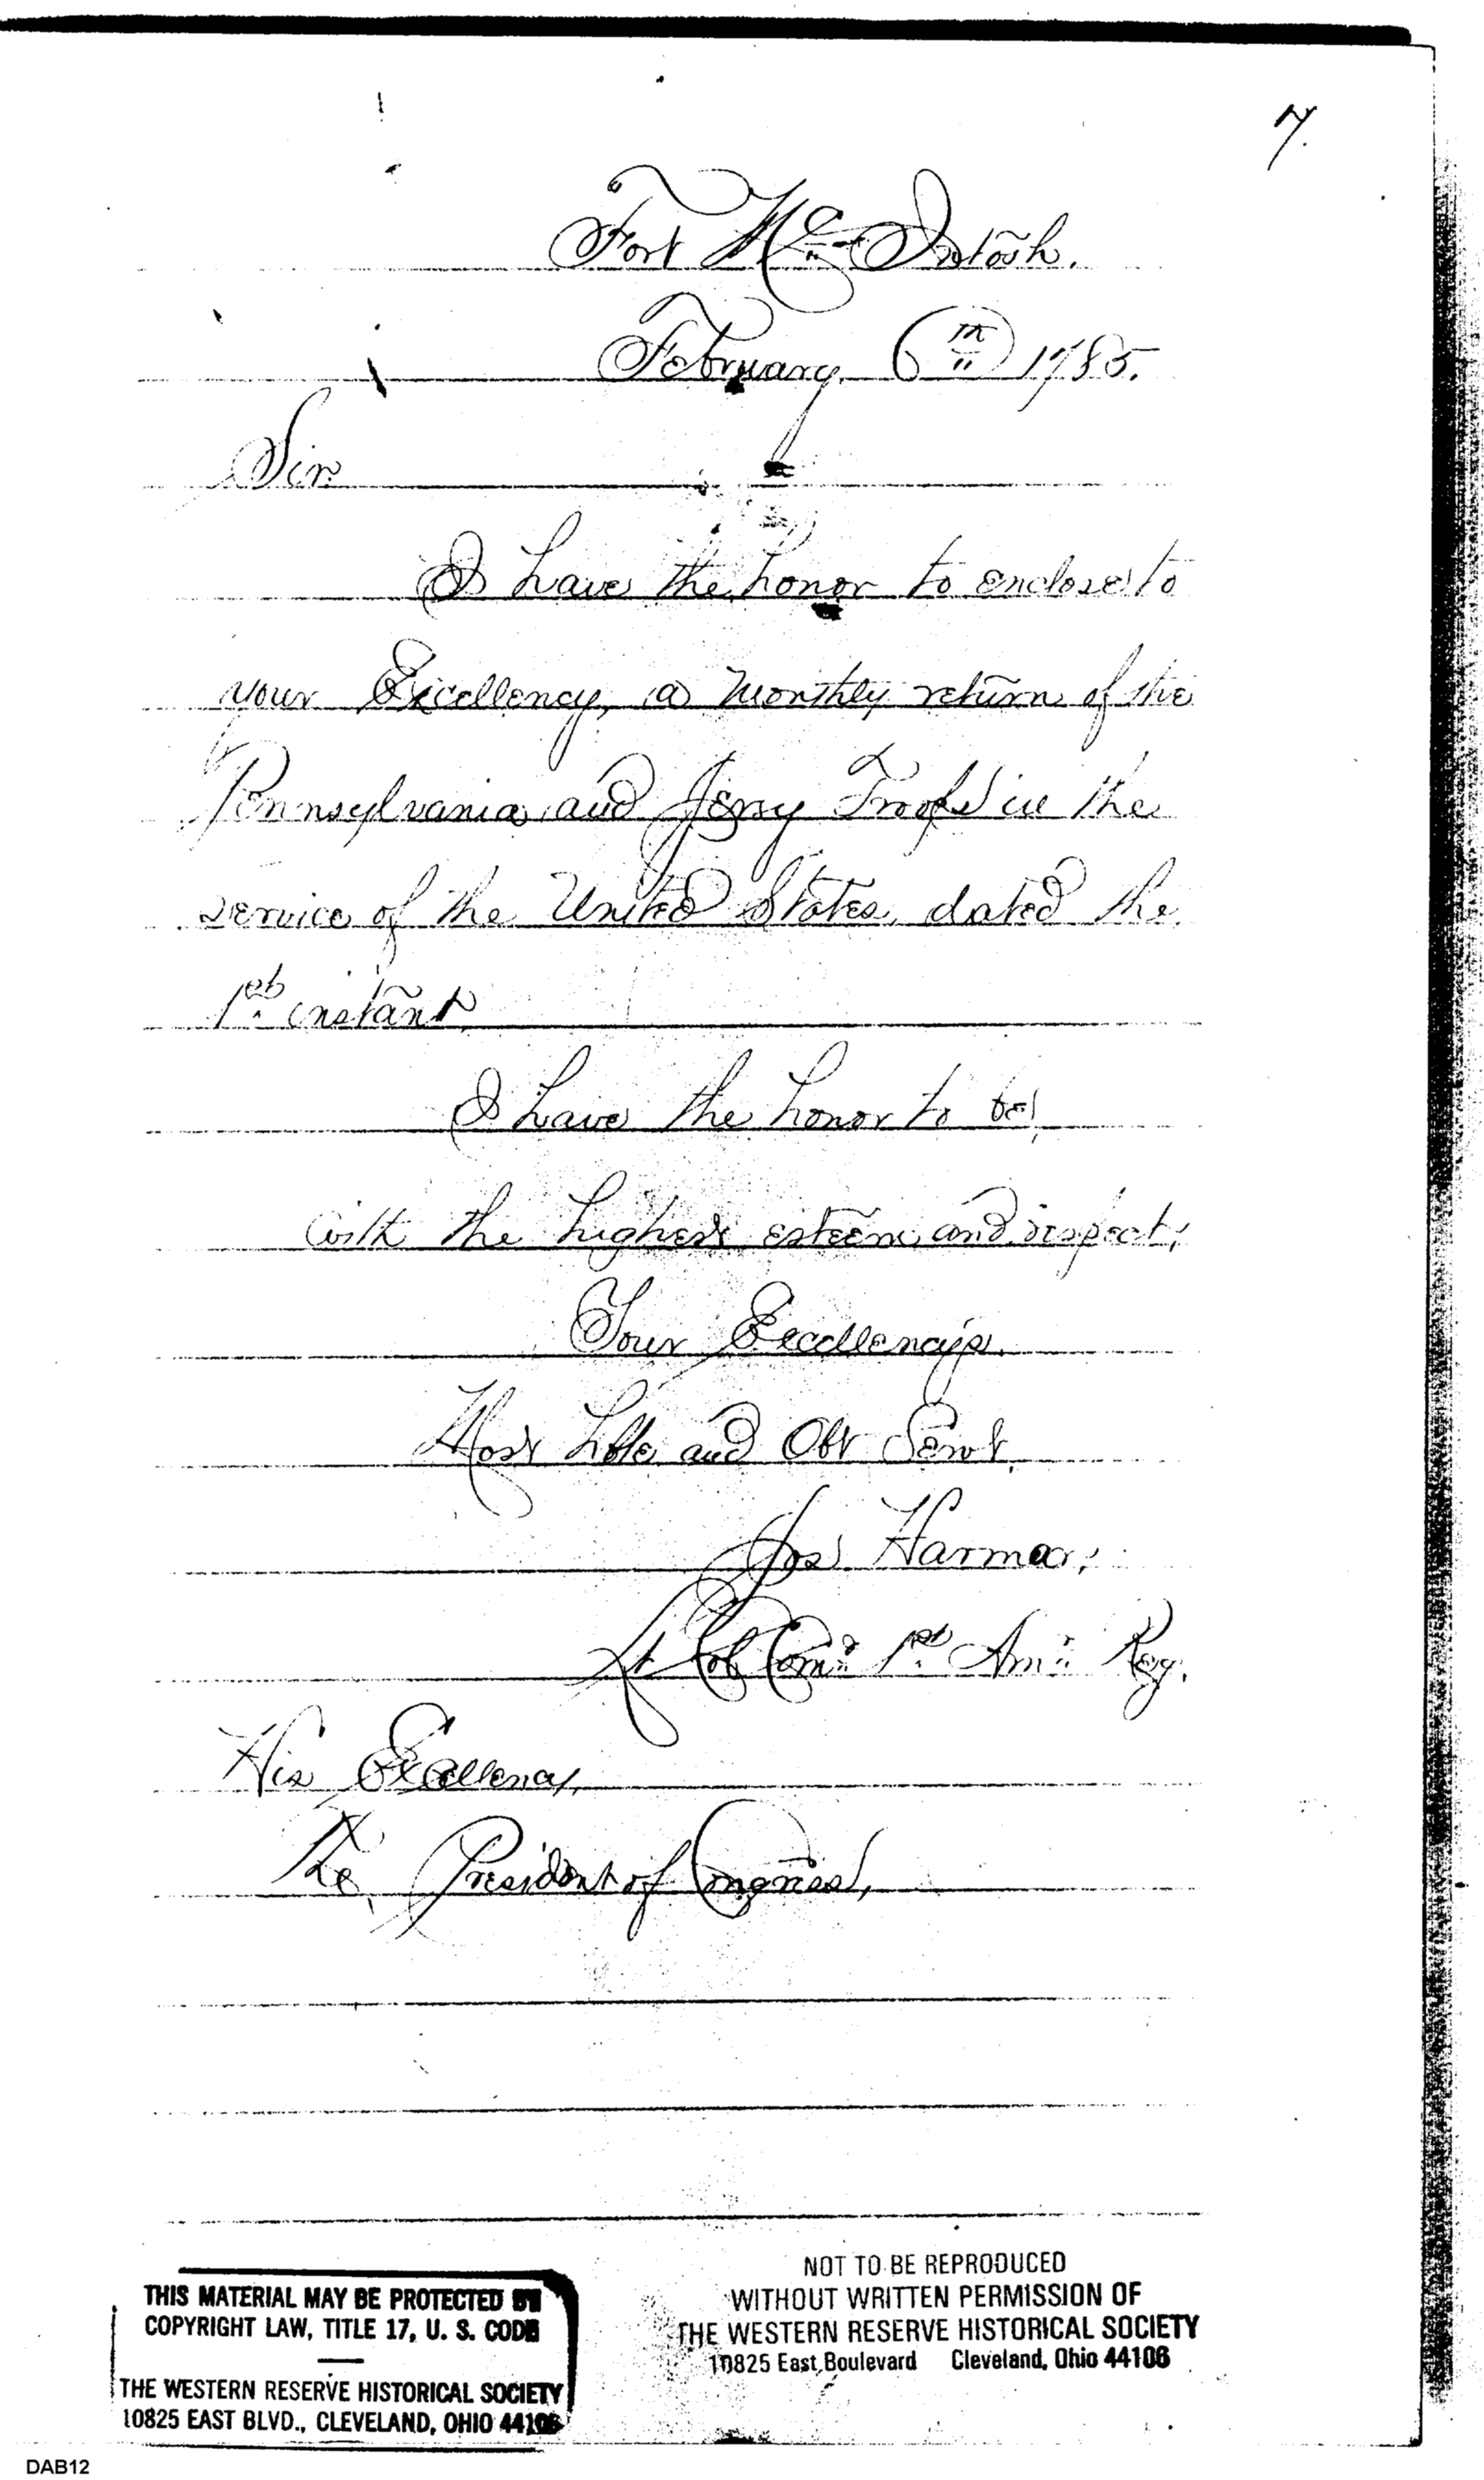 7.
Fort Mc Intosh.
February, 6th 1785.
Sir
I have the honor to enclose to
your Excellency, a monthly return of the
Pennsylvania and Jersy Troops in the
service of the United States, dated the
1st instant
I have the honor to be,
with the highest esteem and respect,
Your Excellency's
Most Hble and Obt Servt
Jos Harmar,
Lt Col Comd 1st Amn Reg.
His Excellency,
The President of Congress,
THIS MATERIAL MAY BE PROTECTED BY
COPYRIGHT LAW, TITLE 17, U. S. CODE
THE WESTERN RESERVE HISTORICAL SOCIETY
10825 EAST BLVD., CLEVELAND, OHIO 44106
NOT TO BE REPRODUCED
WITHOUT WRITTEN PERMISSION OF
THE WESTERN RESERVE HISTORICAL SOCIETY
10825 East Boulevard Cleveland, Ohio 44106
DAB12